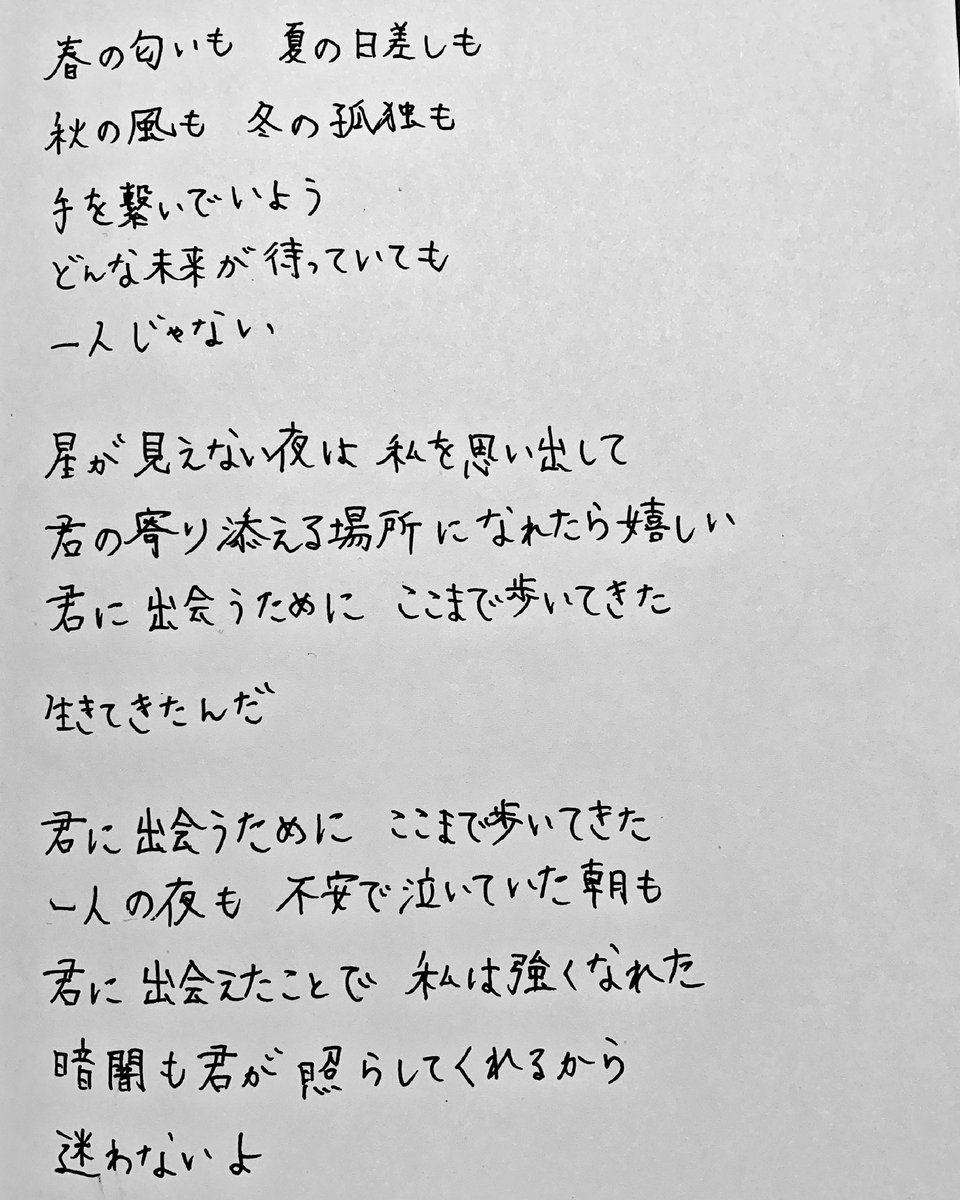 春の匂いも　夏の日差しも
秋の風も　冬の孤独も
手を繋いでいよう
どんな未来が待っていても
一人じゃない
星が見えない夜は 私を思い出して
君の寄り添える場所になれたら嬉しい
君に出会うために　ここまで歩いてきた
生きてきたんだ
君に出会うために　ここまで歩いてきた
一人の夜も　不安で泣いていた朝も
君に出会えたことで　私は強くなれた
暗闇も君が照らしてくれるから
迷わないよ